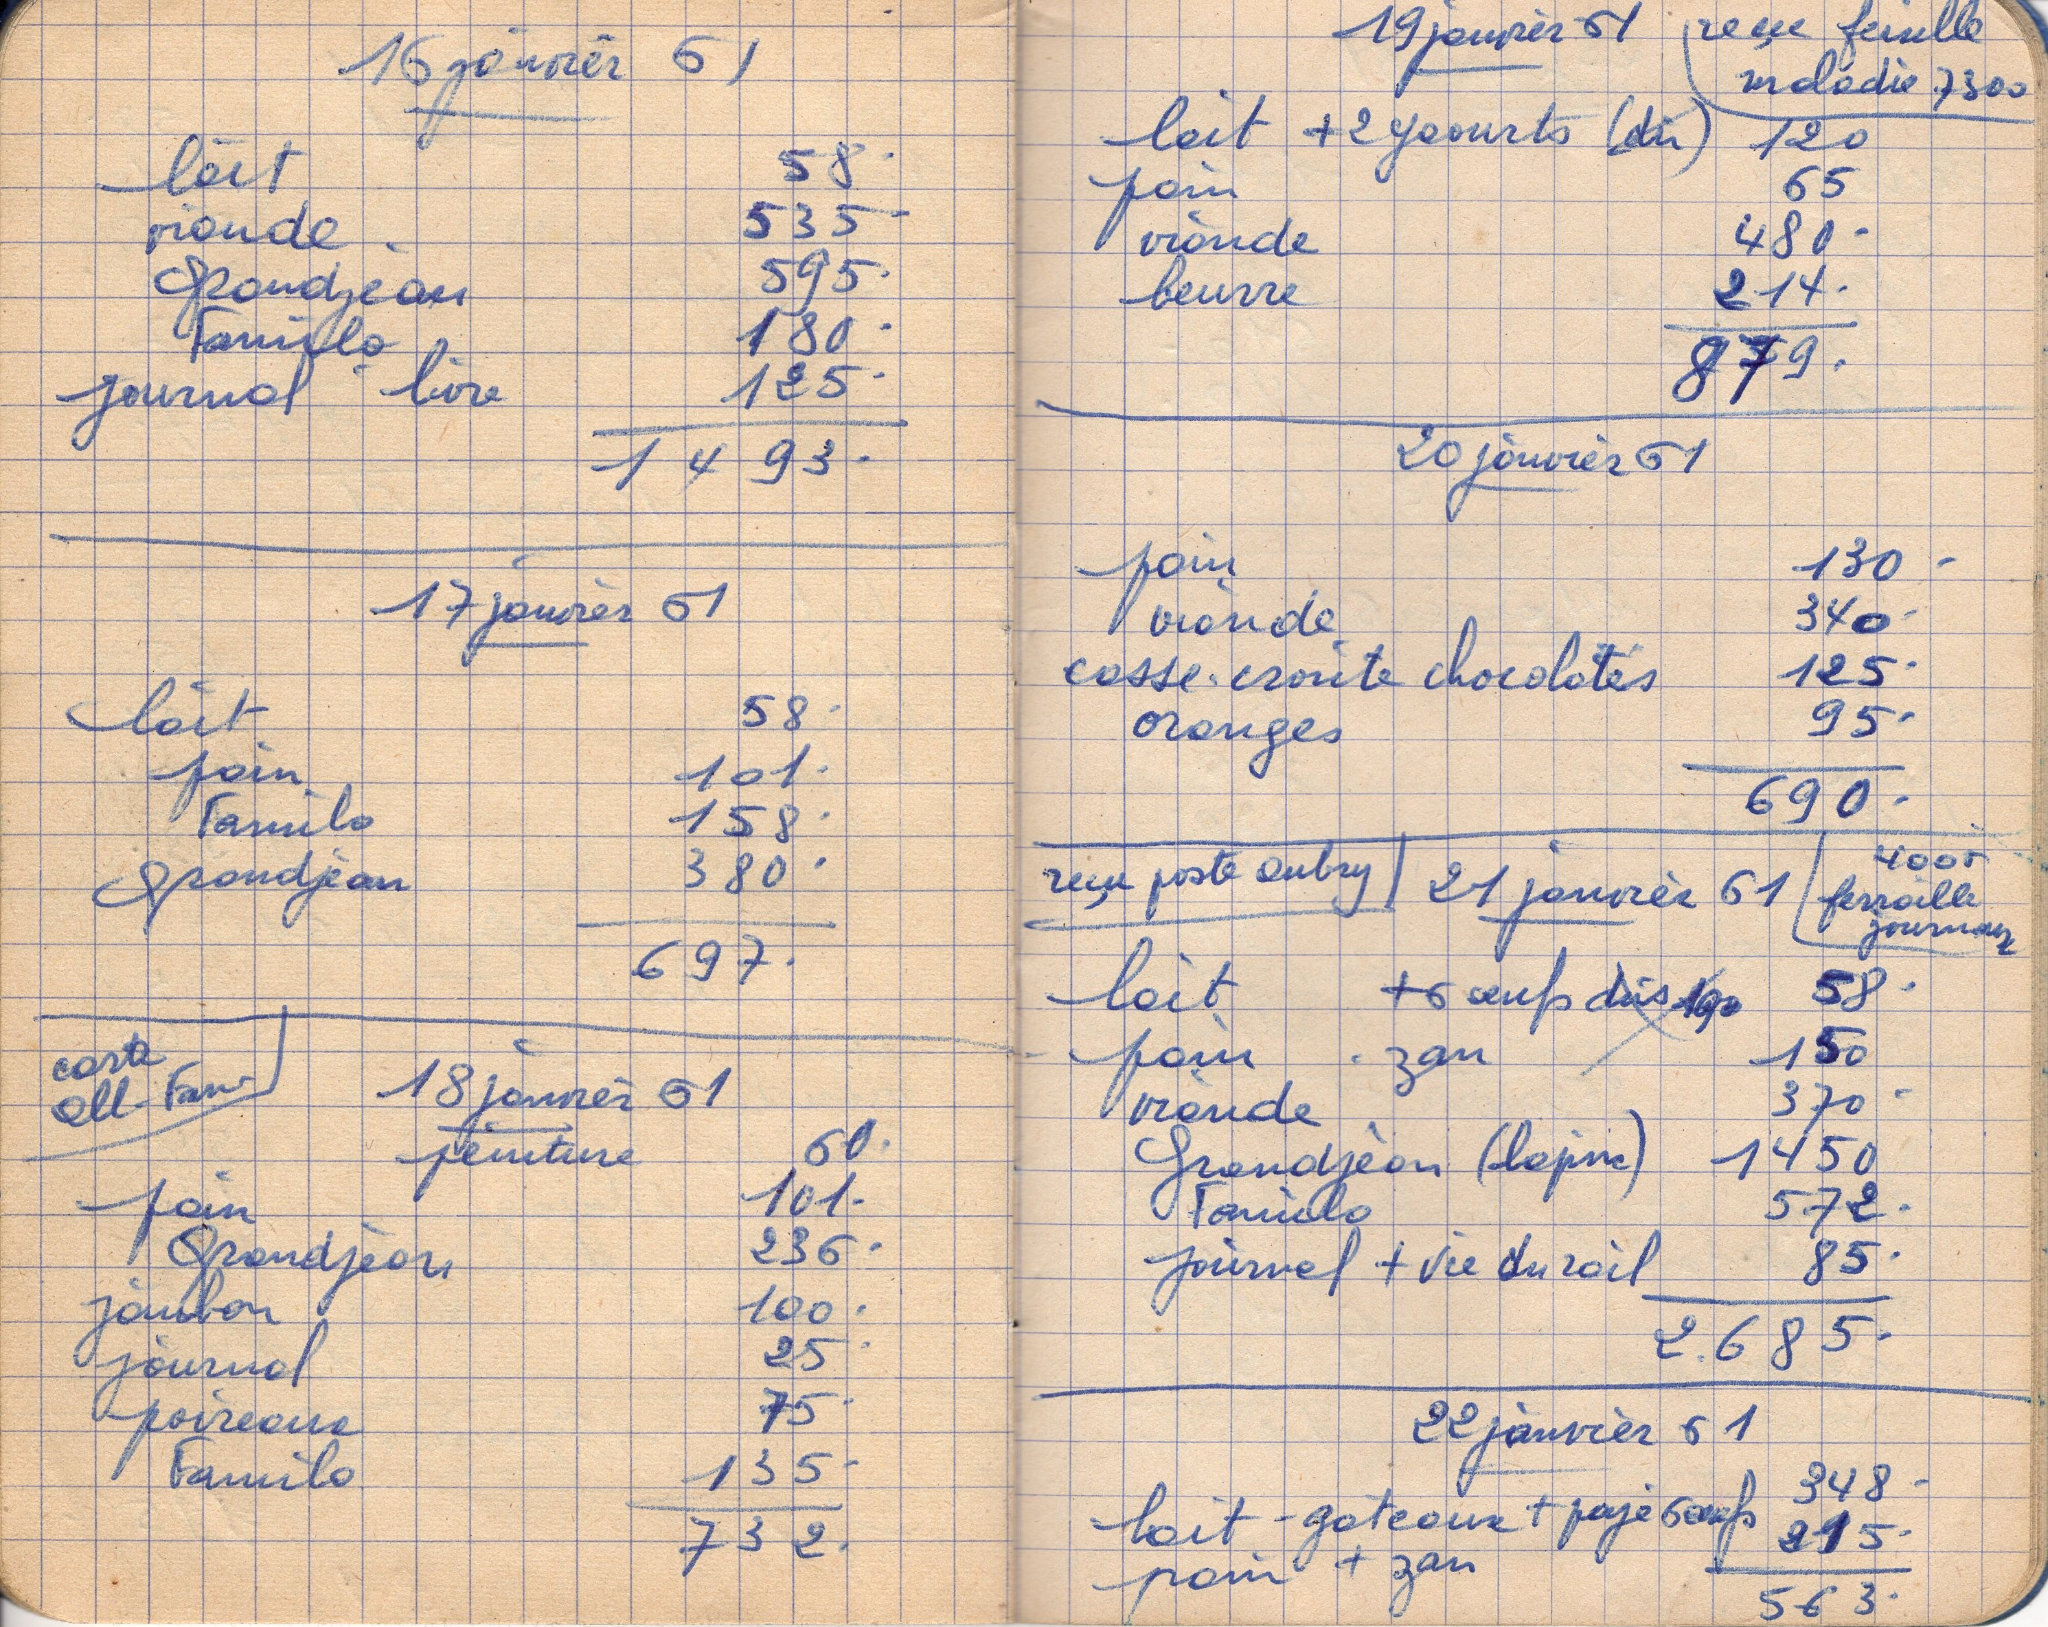 16 janvier 61
lait 58.
viande. 535
Grandjean 595.
Familo 180.
journal - livre 125.
1493.
17 janvier 61
lait 58.
pain 101.
Familo 158.
Grandjean 380.
697.
carte
all. Fam
18 janvier 61
peinture 60.
pain 101.
Grandjean 236.
jambon 100.
journal 25.
poireaux 75.
Familo 135.
732.
19 janvier 61
reçu feuille
maladie 7300
lait + 2 yaourts (dû) 120
pain 65
viande 480.
beurre 214.
879.
20 janvier 61
pain 130.
viande 340.
casse-croûte chocolatés 125.
oranges 95.
690.
reçu poste Aubry
21 janvier 61
4005
ferraille
journaux
lait + 6 œufs dûs 190 58.
pain . zan 150
viande 370.
Grandjean (lapin) 1450
Familo 572.
journal + vie du rail 85.
2.685.
22 janvier 61
lait - gateaux + payé 6 œufs 348.
pain + zan 215.
563.